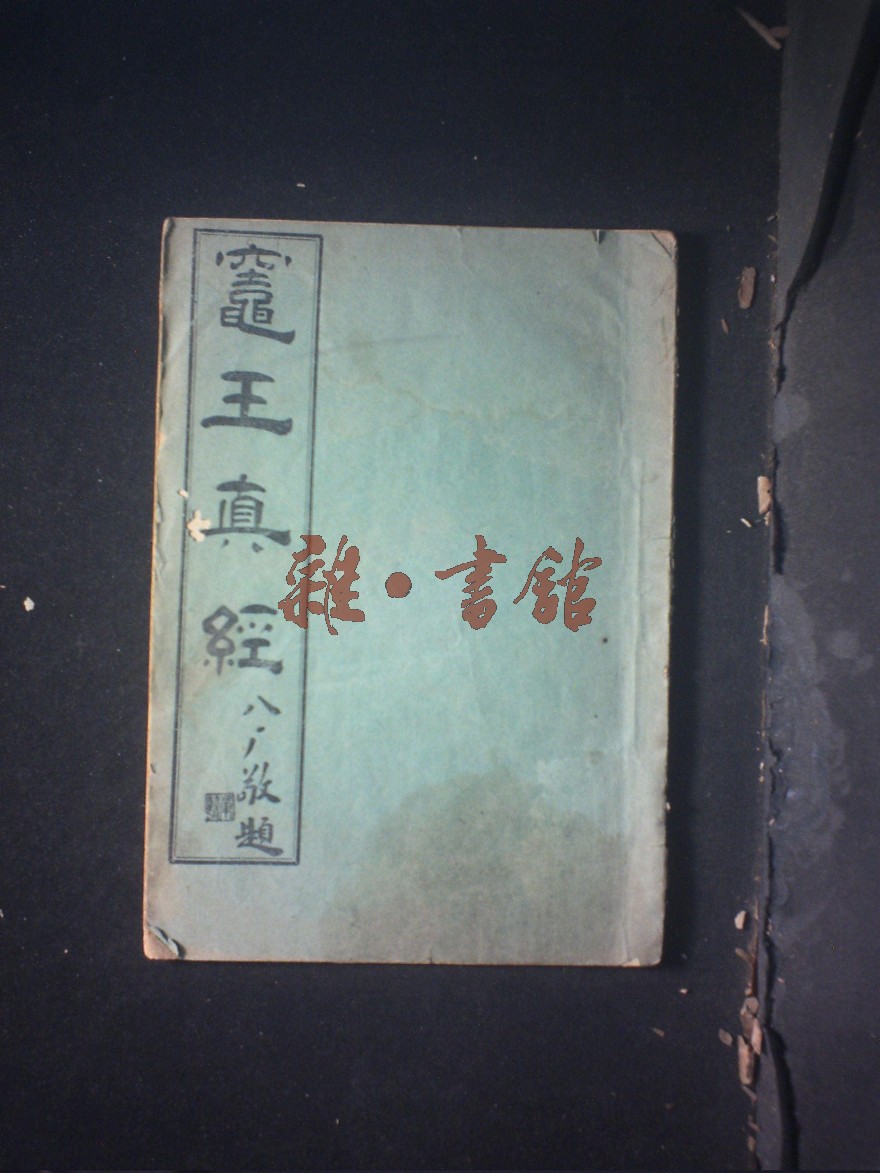 竈王真經
敬題
雜·書館